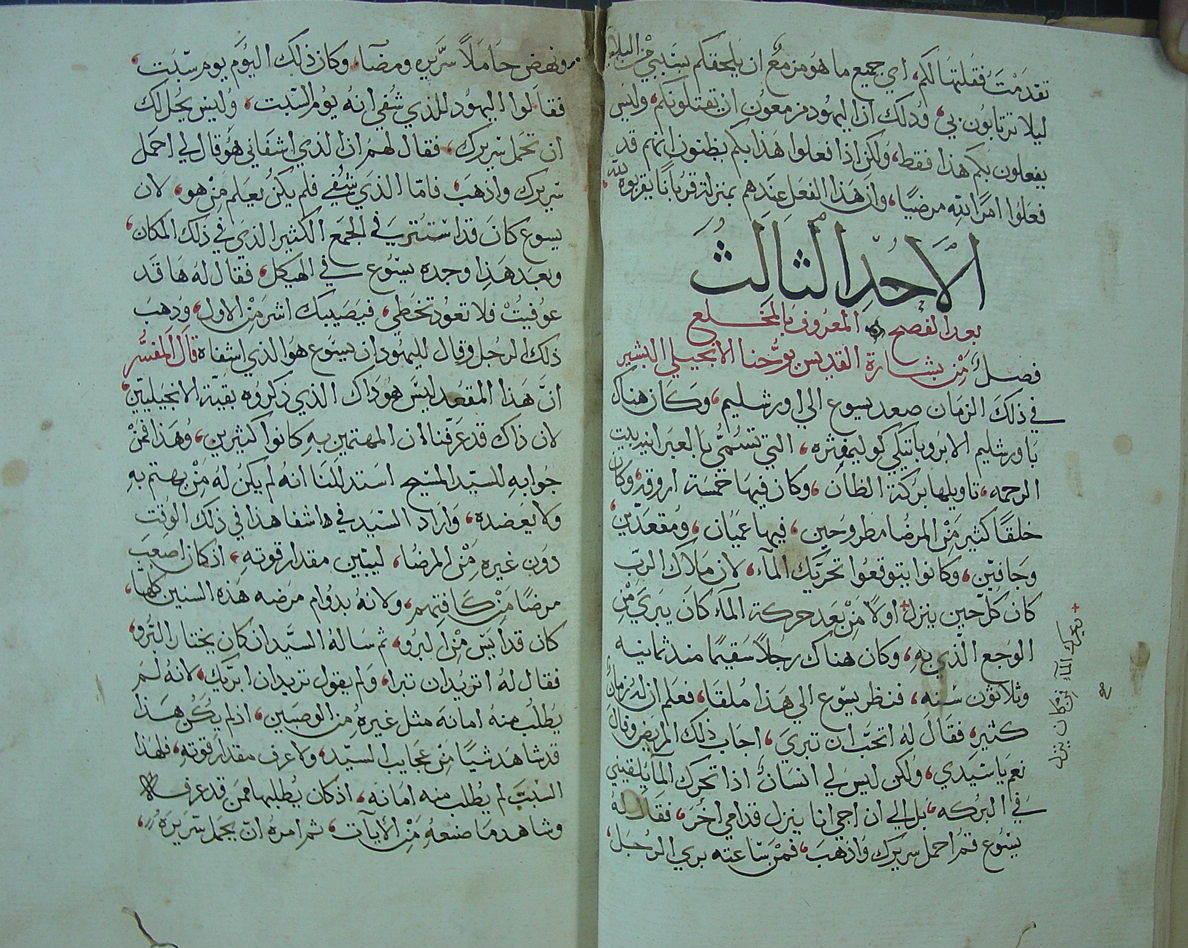 تقدمت فقلتها لكم، اي جميع ما هو مزمع ان يلحقكم بسببي من البلايا
ليلا ترتابون بي، وذلك ان اليهود مزمعون ان يقتلوكم، وليس
يفعلون بكم هذا فقط، ولكن اذا فعلوا هذا بكم يظنون انهم قد
فعلوا امرًا لله مرضيًا، وان هذا الفعل عندهم بمنزلة قربانًا يقربوه لله
الاحد الثالث
بعد الفصح المعروف بالمخلع
فصل من بشارة القديس يوحنا الانجيلي البشير
في ذلك الزمان صعد يسوع الي اورشليم، وكان هناك
باورشليم الابروباتيكي كوليمفيثره، التي تسمي بالعبرانيه بيت
الرحمه، تاويلها بركة الظان، وكان فيها خمسة اروقه، وكان
خلقًا كثير من المرضا مطروحين، فيها عميان، ومقعدين،
وجافين، وكانوا يتوقعوا تحريك الماء، لان ملاك الرب
كان كل حين ينزل اولًا من بعد حركة الماء كان يبري من
الوجع الذي به، وكان هناك رجلًا سقيمًا منذ ثمانيه
وثلاثون سنه، فنظر يسوع الي هذا ملقا، فعلم ان له زمان
كثير، فقال له اتحب ان تبري، اجاب ذلك المريض وقال
نعم ياسيدي، ولكن ليس لي انسان اذا تحرك الما يلقيني
في البركه، بل الي ان اجي انا ينزل قدامي اخر، فقال له
يسوع قم احمل سريرك واذهب، فمن ساعته بري الرجل
ونهض حاملًا سريره ومضا، وكان ذلك اليوم يوم سبت،
فقالوا اليهود للذي شفي انه يوم السبت، وليس يحل لك
ان تحمل سريرك، فقال لهم ان الذي اشفاني هو قال لي احمل
سريرك واذهب، فاما الذي شفي فلم يكن يعلم من هو، لان
يسوع كان قد استتر في الجمع الكثير الذي في ذلك المكان،
وبعد هذا وجده يسوع في الهيكل، فقال له ها قد
عوفيت فلا تعود تخطي، فيصيبك اشر من الاول، وذهب
ذلك الرجل وقال لليهود ان يسوع هو الذي اشفاه قال المفسر
ان هذا المقعد ليس هو ذاك الذي ذكروه بقية الانجيليين
لان ذاك قد عرفنا ان المهتمين به كانوا كثيرين، وهذا فمن
جوابه للسيد المسيح استدللنا انه لم يكن له من يهتم به
ولا يعضده، واراد السيد في هاشفا هذا في ذلك الوقت
دون غيره من المرضا، ليبين مقدار قوته، اذ كان اصعب
مرضًا من كافتهم، ولانه بدوام مرضه هذه السنين كلها،
كان قد ايس من البرو، ثم ساله السيد ان كان يختار البرو،
فقال له اتريد ان تبرا، ولم يقول تريد ان ابريك، لانه لم
يطلب منه امانه مثل غيره من الوصبين، اذ لم يكن هذا
قد شاهد شيًا من عجايب السيد، ولا عرف مقدار قوته، فلهذا
السبب لم يطلب منه امانه، اذ كان يطلبها ممن قد عرف
وشاهد ما صنعه من الايات، ثم امره ان يحمل سريره،